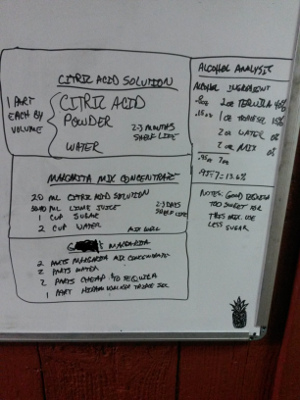 CITRIC ACID SOLUTION
1 PART EACH BY VOLUME
CITRIC ACID
POWDER
WATER
2-3 MONTHS
SHELF LIFE
MARGARITA MIX CONCENTRATE
20 ML CITRIC ACID SOLUTION
ML LIME JUICE
1 CUP SUGAR
2 CUP WATER
2-3 DAYS
SHELF LIFE
MIX WELL
MARGARITA
2 PARTS MARGARITA MIX CONCENTRATE
2 PARTS WATER
2 PARTS CHEAP TEQUILA
1 PART TRIPLE SEC
ALCOHOL ANALYSIS
ALCOHOL INGREDIENT
.8oz 2oz TEQUILA 40%
.15oz 1oz TRIPLE SEC 15%
2oz WATER 0%
2oz MIX 0%
.95oz 7oz
.95/7=13.6%
NOTES: GOOD
TOO SWEET FOR
THIS MIX. USE
LESS SUGAR